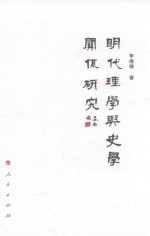 李德锋 著
明代理學與史學
關係研究
人民出版社